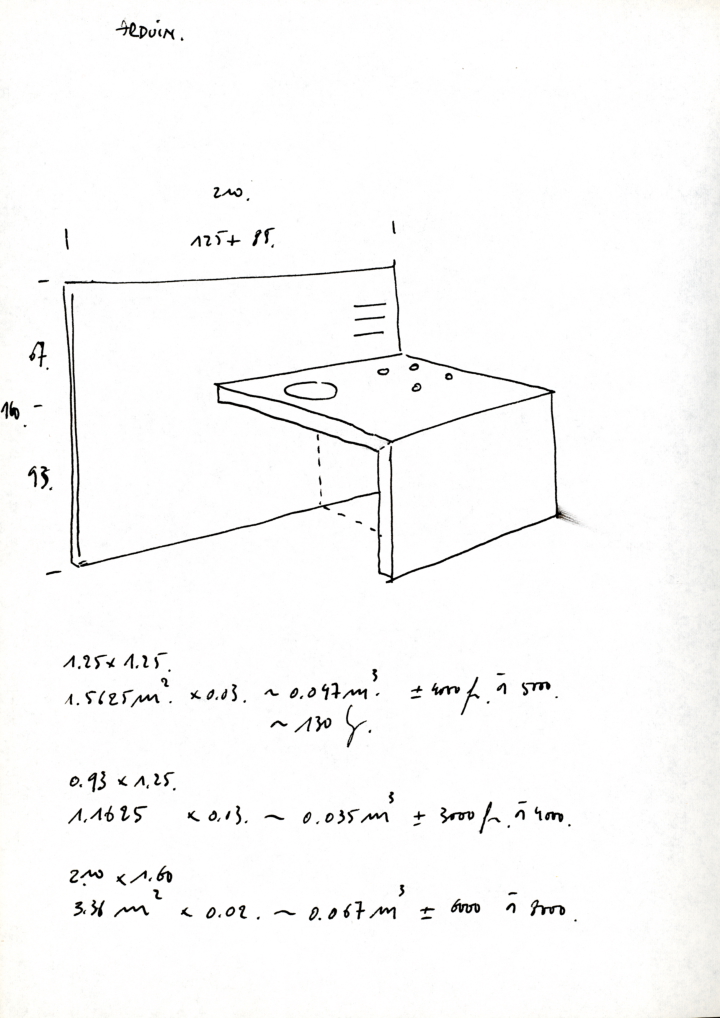 ARDUIN.
210.
125 + 85.
67.
160.
93.
1.25 x 1.25.
1.5625 m². x 0.03. ~ 0.047 m³. ± 4000 fr. à 5000.
~ 130 kg.
0.93 x 1.25.
1.1625 x 0.03. ~ 0.035 m³ ± 3000 fr. à 4000.
2.10 x 1.60
3.36 m² x 0.02. ~ 0.067 m³ ± 6000 à 8000.